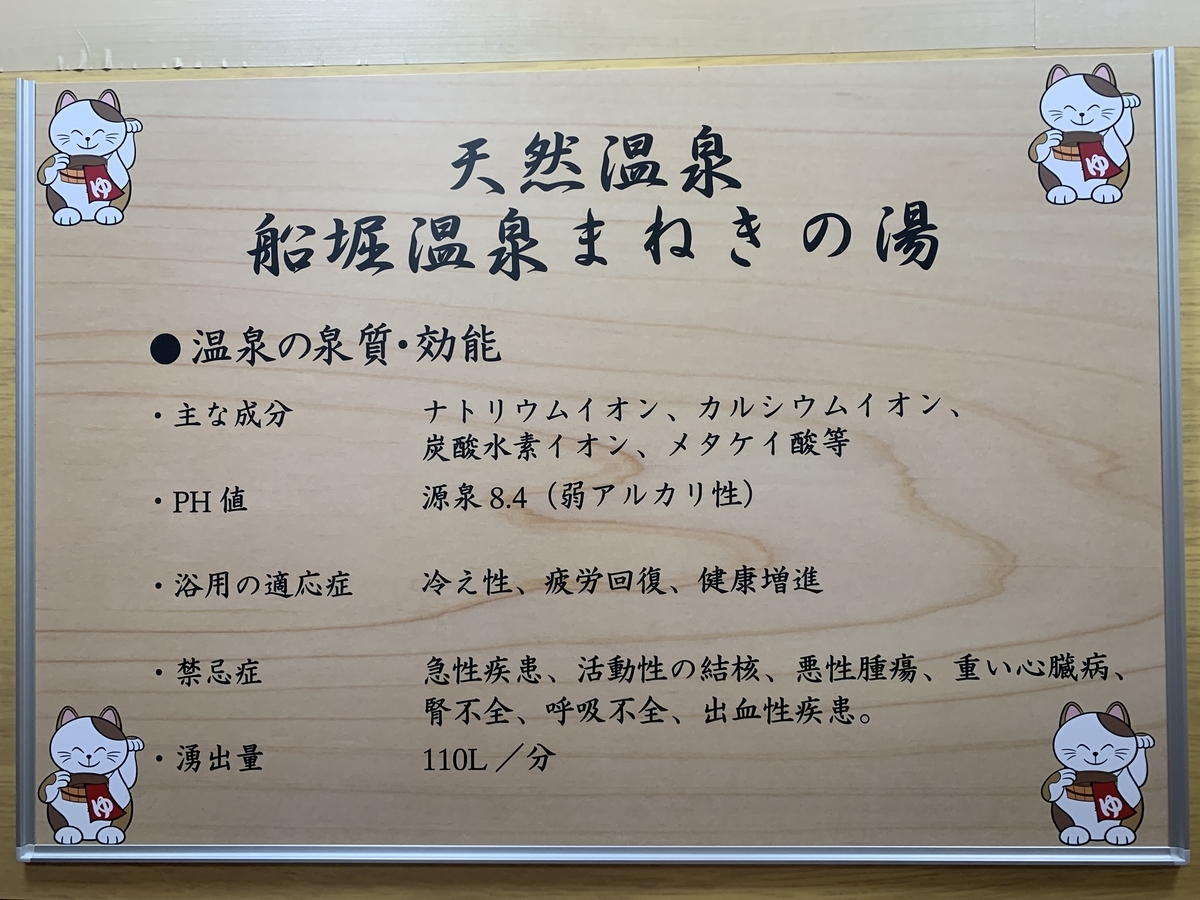 天然温泉
船堀温泉まねきの湯
●温泉の泉質・効能
・主な成分 ナトリウムイオン、カルシウムイオン、
炭酸水素イオン、メタケイ酸等
・PH値 源泉8.4（弱アルカリ性）
・浴用の適応症 冷え性、疲労回復、健康増進
・禁忌症 急性疾患、活動性の結核、悪性腫瘍、重い心臓病、
腎不全、呼吸不全、出血性疾患。
・湧出量 110L／分
ゆ
ゆ
ゆ
ゆ